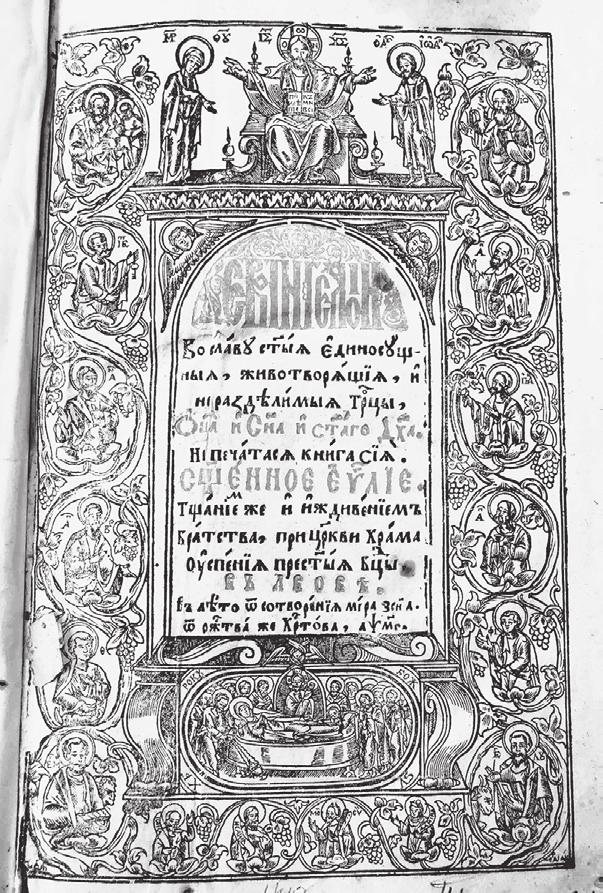 ІС ХС
Во сла́ву ст҃ы́ѧ є҆диносꙋ́щ-
ныѧ, животворѧ́щїѧ, и҆
нераздѣли́мыѧ Трⷪ҇цы,
Ѻ҆ц҃а̀ и҆ Сн҃а и҆ ст҃а́гѡ Дх҃а.
Напеча́тасѧ кни́га сїѧ̀.
СЩ҃Е́ННОЕ Е҆Ѵ҃ЛІЕ.
Тща́нїемъ же и҆ и҆ждиве́нїемъ
Бра́тства, при Цр҃кви Хра́ма
Оу҆спе́нїѧ прест҃ы́ѧ Бц҃ы.
ВЪ ЛВОВѢ.
въ лѣ́то ѿ сотворе́нїѧ мі́ра ҂зсна.
ѿ рⷤ҇тва́ же Хрⷭ҇то́ва, ҂аѱмг.